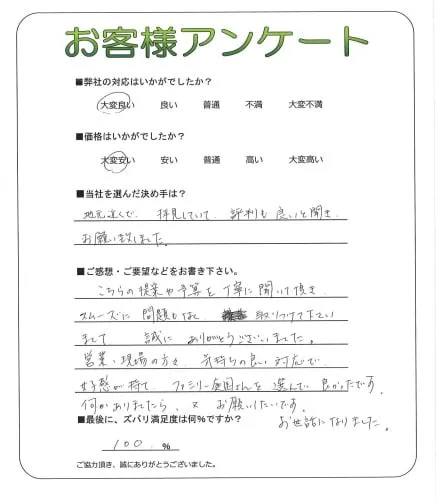 お客様アンケート
■弊社の対応はいかがでしたか？
大変良い 良い 普通 不満 大変不満
■価格はいかがでしたか？
大変安い 安い 普通 高い 大変高い
■当社を選んだ決め手は？
地元近くで、拝見していて、評判も良いと聞き
お願い致しました。
■ご感想・ご要望などをお書き下さい。
こちらの提案や予算を丁寧に聞いて頂き
スムーズに問題もなく 取りつけて下さい
まして 誠にありがとうございました。
営業・現場の方々、気持ちの良い対応で
好感が持て、ファミリー庭園さんを選んで良かったです。
何かありましたら、又お願いしたいです。
お世話になりました。
■最後に、ズバリ満足度は何%ですか？
100 %
ご協力頂き、誠にありがとうございました。